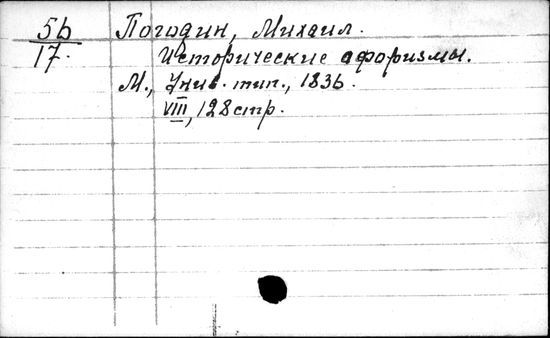 56
17.
Погодин, Михаил.
Исторические афоризмы.
М., Унив. тип., 1836.
VIII, 128 стр.